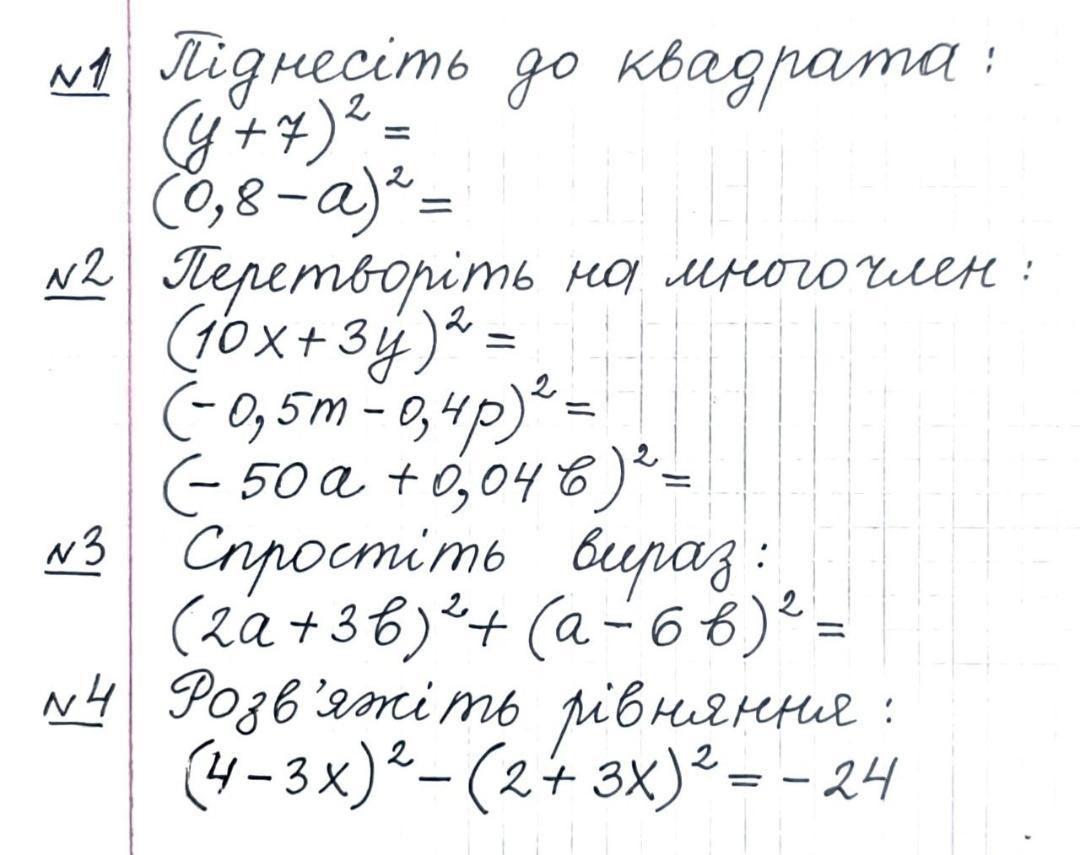 №1 Піднесіть до квадрата:
(y+7)²=
(0,8-a)²=
№2 Перетворіть на многочлен:
(10x+3y)²=
(-0,5m-0,4p)²=
(-50a+0,04в)²=
№3 Спростіть вираз:
(2a+3в)²+(a-6в)²=
№4 Розв'яжіть рівняння:
(4-3x)²-(2+3x)²=-24